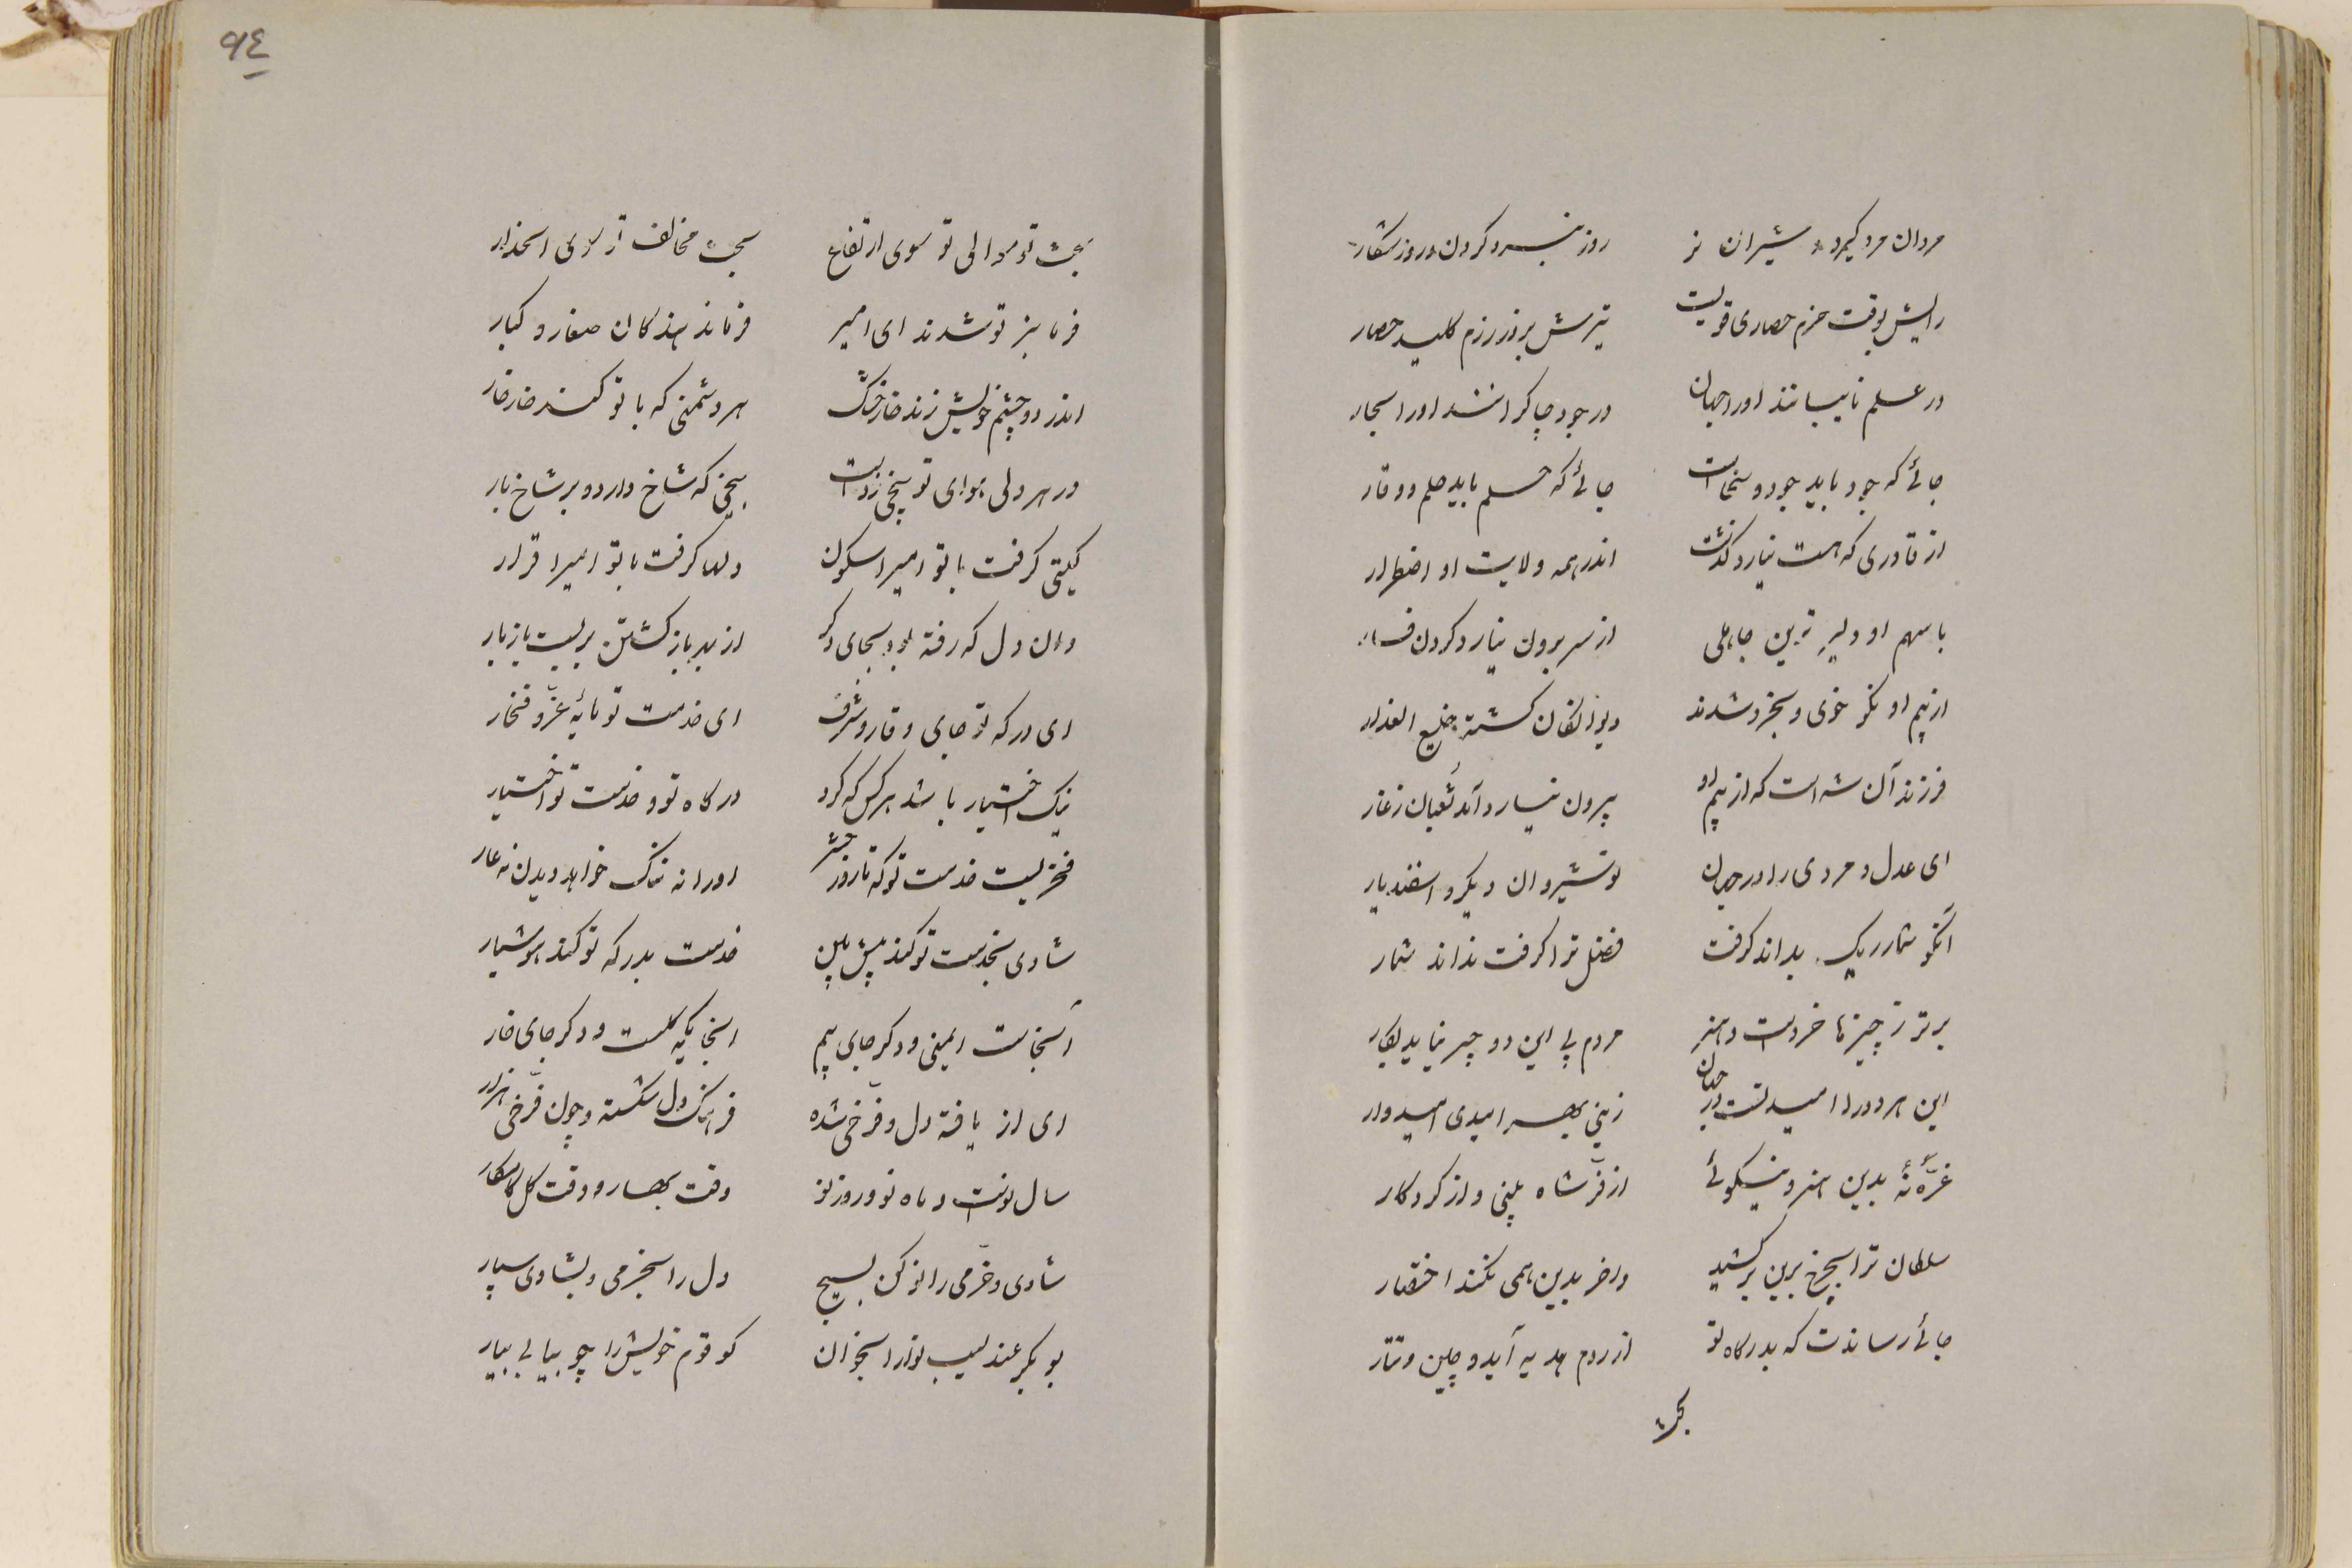 مردان مرد گیرد و شیران نر روز نبرد کردن و روز شکار
رایش بوقت حزم حصاری قویست تیرش بروز رزم کلید حصار
در علم نایبانند او را جهان در جود چاکرانند او را بحار
جائی که جود باید جود و سخاست جائی که حلم باید حلم و وقار
از قادری که هست نیارد گذشت اندر همه ولایت او اضطرار
با سهم او دلیر ترین جاهلی از سر برون نیارد کردن فسار
از بیم او نکو خوی و بخرد شدند دیوانگان گشته خلیع العذار
فرزند آن شه است که از بیم او بیرون نیارد آمد ثعبان ز غار
ای عدل و مردی را در جهان نوشیروان دیگر و اسفندیار
آنکو شمار ریگ بداند گرفت فضل ترا گرفت نداند شمار
برتر ز چیزها خردست و هنر مردم بی این دو چیز نیاید بکار
این هر دو را امیدست در جهان زینی بهر امیدی امیدوار
غرّه نهٔ بدین هنر و نیکوئی از فرّ شاه بینی و از کردگار
سلطان ترا بچرخ برین بر کشید واخر بدین همی نکند اختصار
جائی رساندت که بدرگاه تو از روم هدیه آید و چین و تتار
بخت
٩٤
بخت تو و موالی تو سوی ارتفاع بخت مخالف تو سوی انحدار
فرمانبر تو شدند ای امیر فرماندهندگان صغار و کبار
اندر دو چشم خویش زند خار خشک هر دشمنی که با تو کند خار خار
در هر دلی هوای تو بیخی زدست بیخی که شاخ دارد و بر شاخ بار
گیتی گرفت با تو امیرا سکون دلها گرفت با تو امیرا قرار
وان دل که رفته بود بجای دگر از بهر باز گشتن بربست بار
ای درگه تو جای وقار و شرف ای خدمت تو مایهٔ عزّ و فخار
نیک اختیار باشد هر کس که کرد درگاه تو و خدمت تو اختیار
فخریست خدمت تو که تا روز حشر او را نه ننگ خواهد دیدن نه عار
شادی بخدمت تو کند پیش بین خدمت بدرگه تو کند هوشیار
آنجاست ایمنی و دگر جای بیم اینجا یکیه گلست و دگر جای خار
ای از یافته دل و فرّخی شده فرهنگ دل شکسته و چون فرّخی هزار
سال نوست و ماه نو و روز نو وقت بهار و وقت گل کامکار
شادی و خرّمی را نو کن بسیج دل را بخرّمی و بشادی سپار
بو بکر عندلیب نوا را بخوان گو قوم خویش را چو بیایی بیار